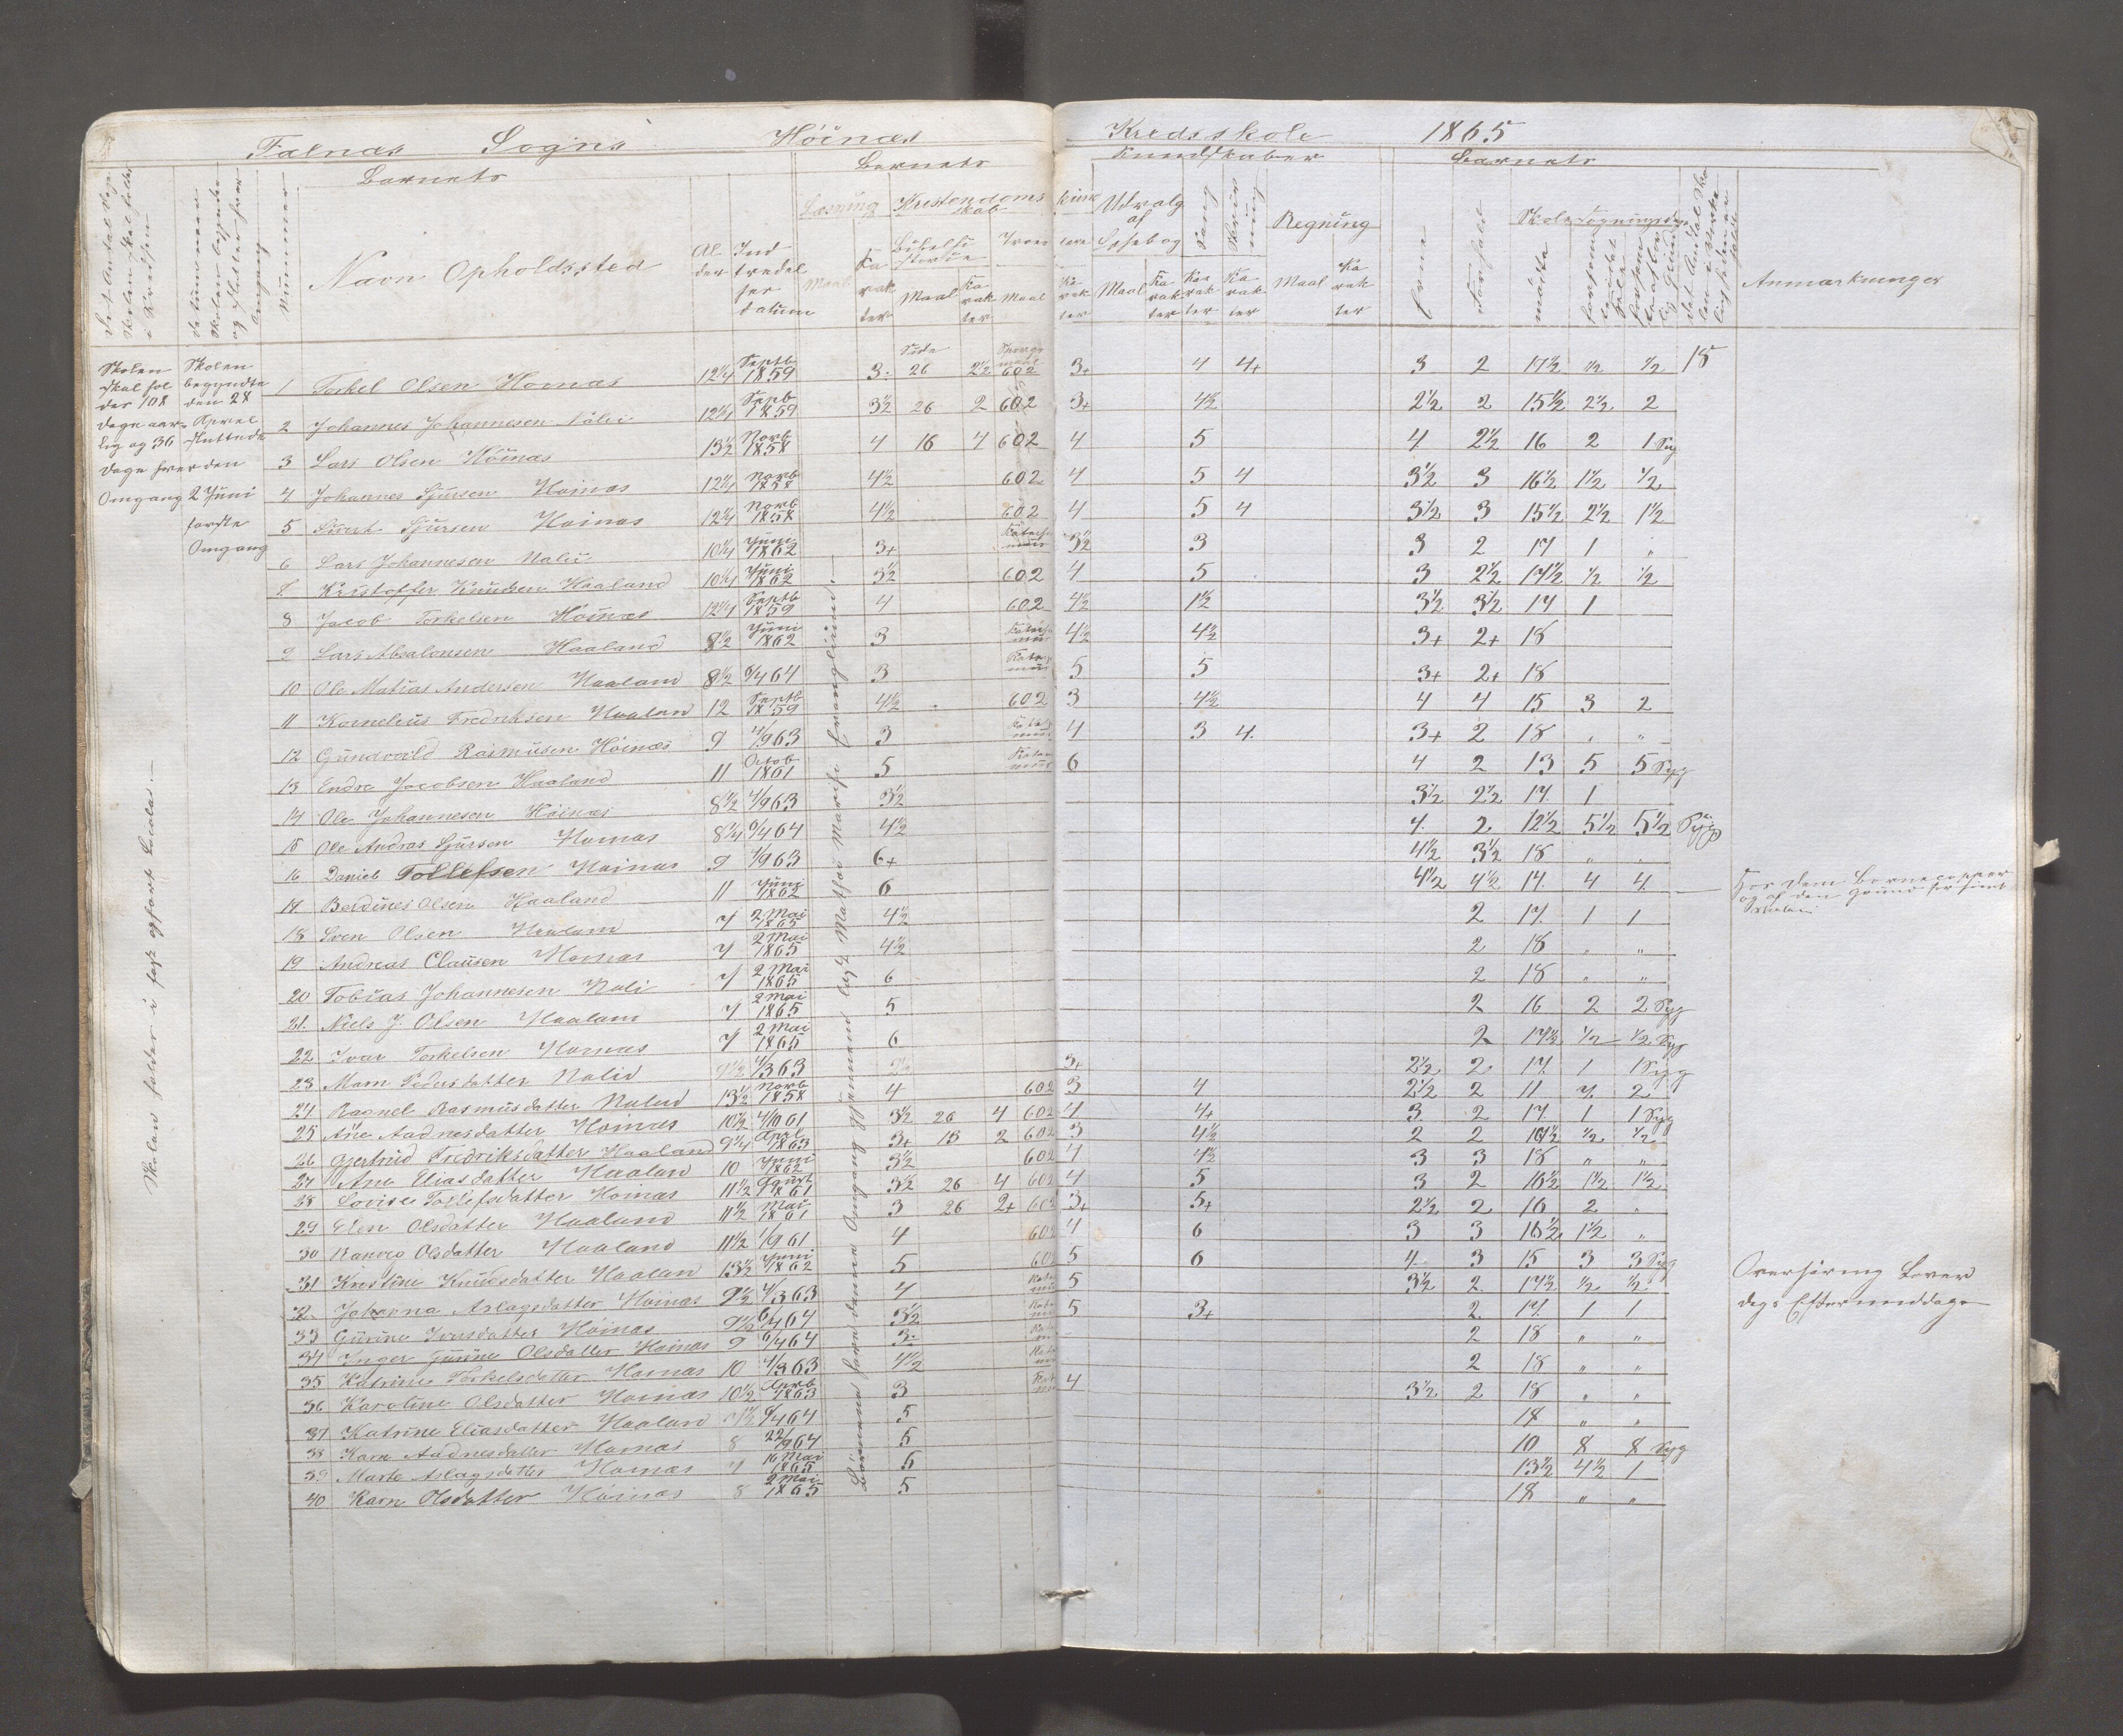 Falnæs Sogns Höinæs Kredsskole 1865
Barnets Barnets Kundskaber Barnets
Nummer
Navn Opholdssted
Al der
Ind tredel ses datum
Læsning Kristendoms kund skab
Udvalg af Læsebog
Sang
Skriv ning
Regning
Evne
Forhold
Skolesøgningsdage
mødte
Anmærkninger
Maal Ka rak ter Maal Ka rak ter Maal Ka rak ter Maal Ka rak ter Ka rak ter Ka rak ter Maal Ka rak ter
Skolen skal hol des 108 dage aar lig og 36 dage hver Omgang
Skolen begyndte den 28 Aprel sluttede den 2 Juni første Omgang
Skolen holdes i fast opført Locale.—
1 Torkel Olsen Hoinæs 12¼ Septb 1859 3. Side 26 2½ Spørgs maal 602 3+ 4 4+ 3 2 17½ ½ ½ 18
2 Johannes Johannesen 12¼ Septb 1859 3½ 26 2 602 3+ 4½ 2½ 2 15½ 2½ 2
3 Lars Olsen Höinæs 13½ Novb 1858 4 16 4 602 4 5 4 2½ 16 2 1 Syg
4 Johannes Sjursen Hoinæs 12¼ Novb 1858 4½ 602 4 5 4 3½ 3 16½ 1½ ½
5 Sivert Sjursen Hoinæs 12¼ Novb 1858 4½ 602 4 5 4 3½ 3 15½ 2½ 1½
6 Lars Johannesen Nalei 10¼ Juni 1862 3+ Katechis mus 3½ 3 3 2 17 1 "
7 Kristoffer Knudsen Haaland 10¼ Juni 1862 3½ 602 4 5 3 2½ 17½ ½ ½
8 Jacob Torkelsen Höinæs 12¼ Septb 1859 4 602 4½ 1½ 3½ 3½ 17 1
9 Lars Absalonsen Haaland 8½ Juni 1862 3 Katechis mus 4½ 4½ 3+ 2+ 18
10 Ole Matias Andersen Haaland 8½ 6/4 64 3 5 5 3+ 2+ 18
11 Kornelius Fredriksen Haalan 12 Septb 1859 4½ 602 3 4½ 4 4 15 3 2
12 Gundvald Rasmusen Höinæs 9 3 4 3 4. 3+ 2 18 " "
13 Endre Jacobsen Haaland 11 Octob 1861 5 6 4 2 13 5 5 Syg
14 Ole Johannesen Höinæs 8½ 4/9 63 3½ 3½ 2½ 17. 1
15 Ole Andras Sjursen Hoinæs 8¼ 6/4 64 4½ 4. 2. 12½ 5½ 5½ Syg
16 Daniel Tollefsen Hoinæs 9 4/9 63 6+ 4½ 3½ 18 " "
17 Berdines Olsen Haaland 11 Juni 1862 6 4½ 4½ 14. 4 4
18 Sven Olsen Haaland 7 2 Mai 1865 4½ 2 17. 1 1
19 Andreas Clausen Hoinæs 7 2 Mai 1865 4½ 2 18 " "
20 Tobias Johannesen Nali 7 2 Mai 1865 6 2 18 " "
21. Niels J. Olsen Haaland 7 2 Mai 1865 5 2 16 2 2 Syg
22 Ivar Torkelsen Hoinæs 7 2 Mai 1865 6 2 17½ ½ ½ Syg
23 Marn Pedersdatter Nalid 9½ 4/3 63 3+ 2½ 2 17. 1 1 Syg
24 Ragnel Rasmusdatter Naleid 13½ Novb 1858 4 602 3 4 2½ 2 11 7. 2
25 Ane Aadnesdatter Hoinæs 10½ 3½ 26 4 602 4 4+ 3 2 17 1 1 Syg
26 Gjertrud Fredriksdatter Haaland 9¼ Aprl 1863 3+ 18 2 602 3 4½ 2 2 ½ ½
27 Ane Eliasdatter Haaland 10 Juni 1862 3½ 602 4 4½ 3 3 18 " "
28 Lovise Tollefsdatter Hoinæs 11½ 1861 3½ 26 4 602 4 5 3 2 16½ 1½ 1½
29 Elen Olsdatter Haaland 11½ Mai 1861 3 26 2+ 602 3+ 5+ 2½ 2 16 2 "
30 Ranveg Olsdatter Haaland 11½ 1/9 61 4 602 4 6 3 3 16½ 1½ "
31 Kristine Knudsdatter Haalan 13½ Juni 1862 5 602 5 6 4 3 15 3 3 Syg
32 Johanna Aslagsdatter Höinæs 9½ 4/3 63 4 5 3½ 2 17½ ½ ½
33 Gurine Iversdatter Höinæs 9½ 6/4 64 3½ 5 3+ 2. 17. 1 1
34 Inger Gurine Olsdatter Hoinæs 9 6/4 64 3. 2 18 " "
35 Katrine Torkelsdatter Hoinæs 10 4/3 63 4½ 2 18 " "
36 Karoline Olsdatter Hoinæs 10½ Aprb 1863 3 4 3½ 2 18 " "
37 Katrine Eliasdatter Haaland 6/4 64 5 18 " "
38 Karn Aadnesdatter Hoinæs 8 22/9 64 5 10 8 8 Syg
39 Marte Aslagsdatter Hoinæs 7 16 Mai 1865 6 13½ 4½ 1
40 Karn Olsdatter Höinæs 8 2 Mai 1865 5 18 " "
Børnene have denne Omgang gjennem lært Mathæi Marcusi Evanglium.—
Overhøring Løver dags Eftermiddage